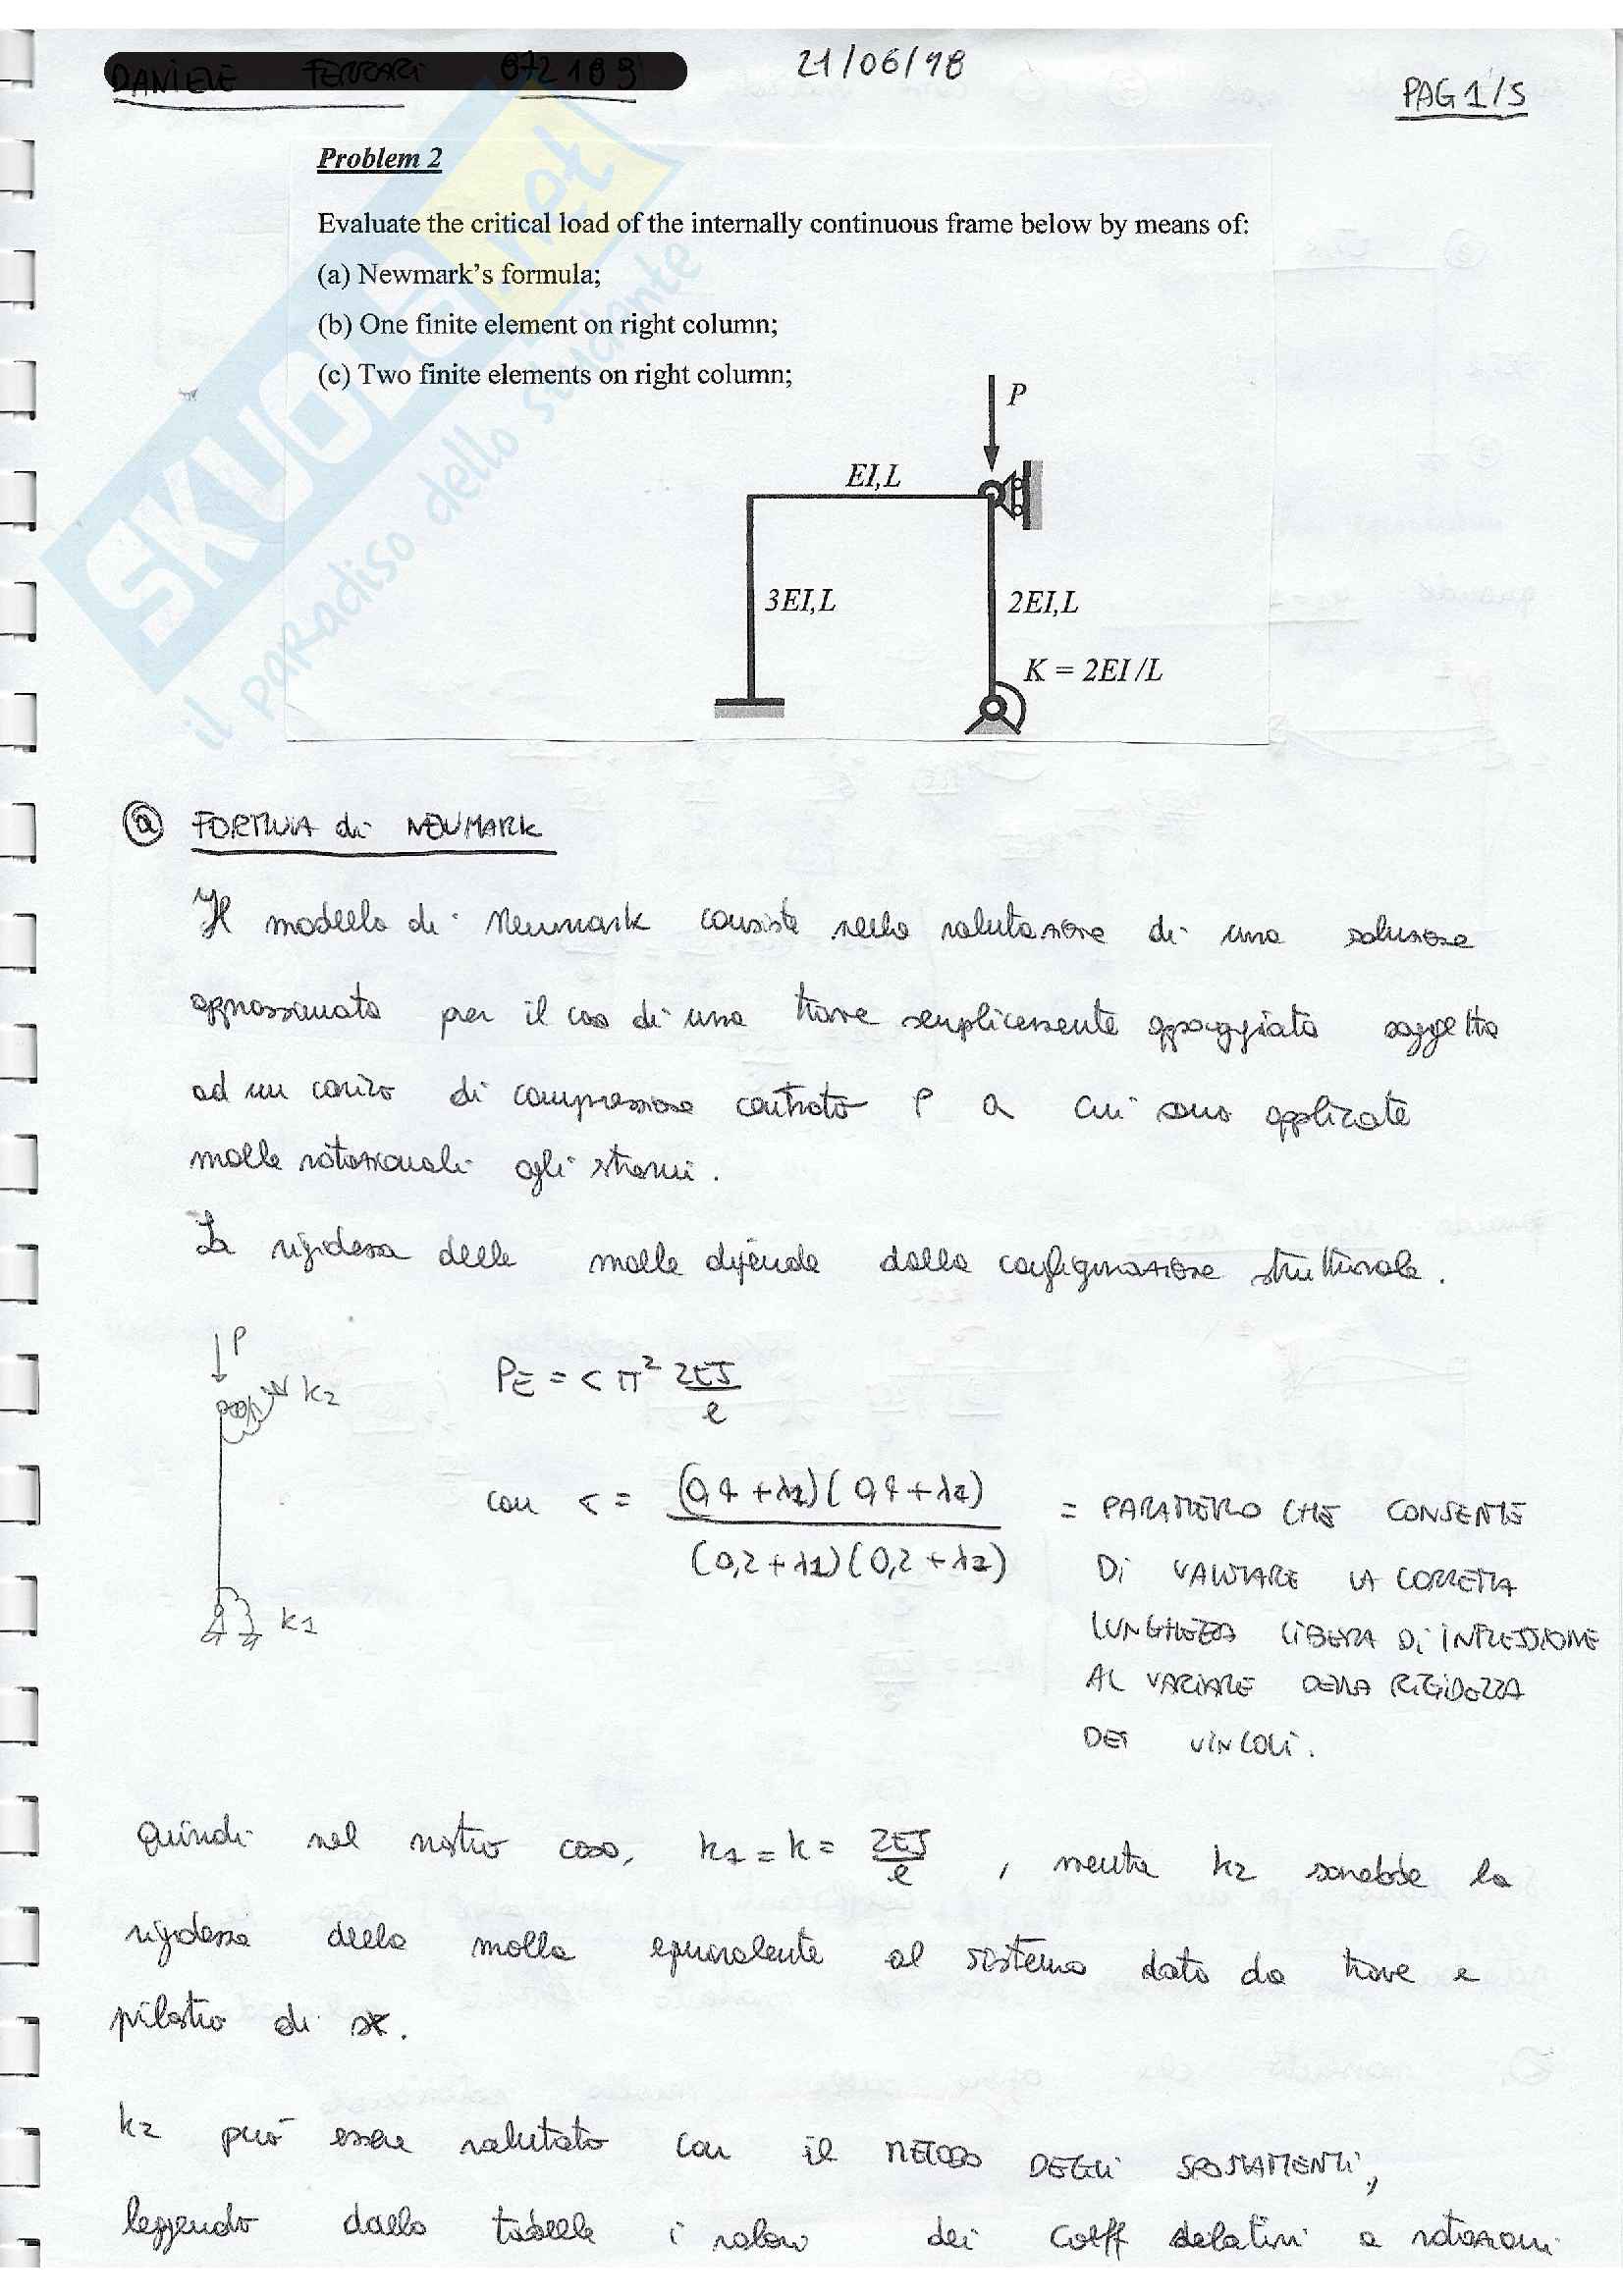 DANIELE FERRARI 872189
21/06/18
PAG 1/5
Problem 2
Evaluate the critical load of the internally continuous frame below by means of:
(a) Newmark's formula;
(b) One finite element on right column;
(c) Two finite elements on right column;
P
EI,L
3EI,L
2EI,L
K = 2EI/L
SKUOLA.net
il paradiso dello studente
(a) FORMULA di NEWMARK
Il modello di Newmark consiste nella valutazione di una soluzione
approssimata per il caso di una trave semplicemente appoggiata soggetta
ad un carico di compressione centrato P a cui sono applicate
molle rotazionali agli stremi.
La rigidezza delle molle dipende dalla configurazione strutturale.
P
k2
k1
PE = c π² 2EJ/l
con c = (0,4 + λ1)(0,4 + λ2) / (0,2 + λ1)(0,2 + λ2)
= PARAMETRO CHE CONSENTE
DI VALUTARE LA CORRETTA
LUNGHEZZA LIBERA DI INFLESSIONE
AL VARIARE DELLA RIGIDEZZA
DEI VINCOLI.
Quindi nel nostro caso, k1 = k = 2EJ/l, mentre k2 sarebbe la
rigidezza della molla equivalente al sistema dato da trave e
pilastro di sx.
k2 può essere valutato con il METODO DEGLI SPOSTAMENTI,
leggendo dalle tabelle i valori dei coeff relativi a rotazioni